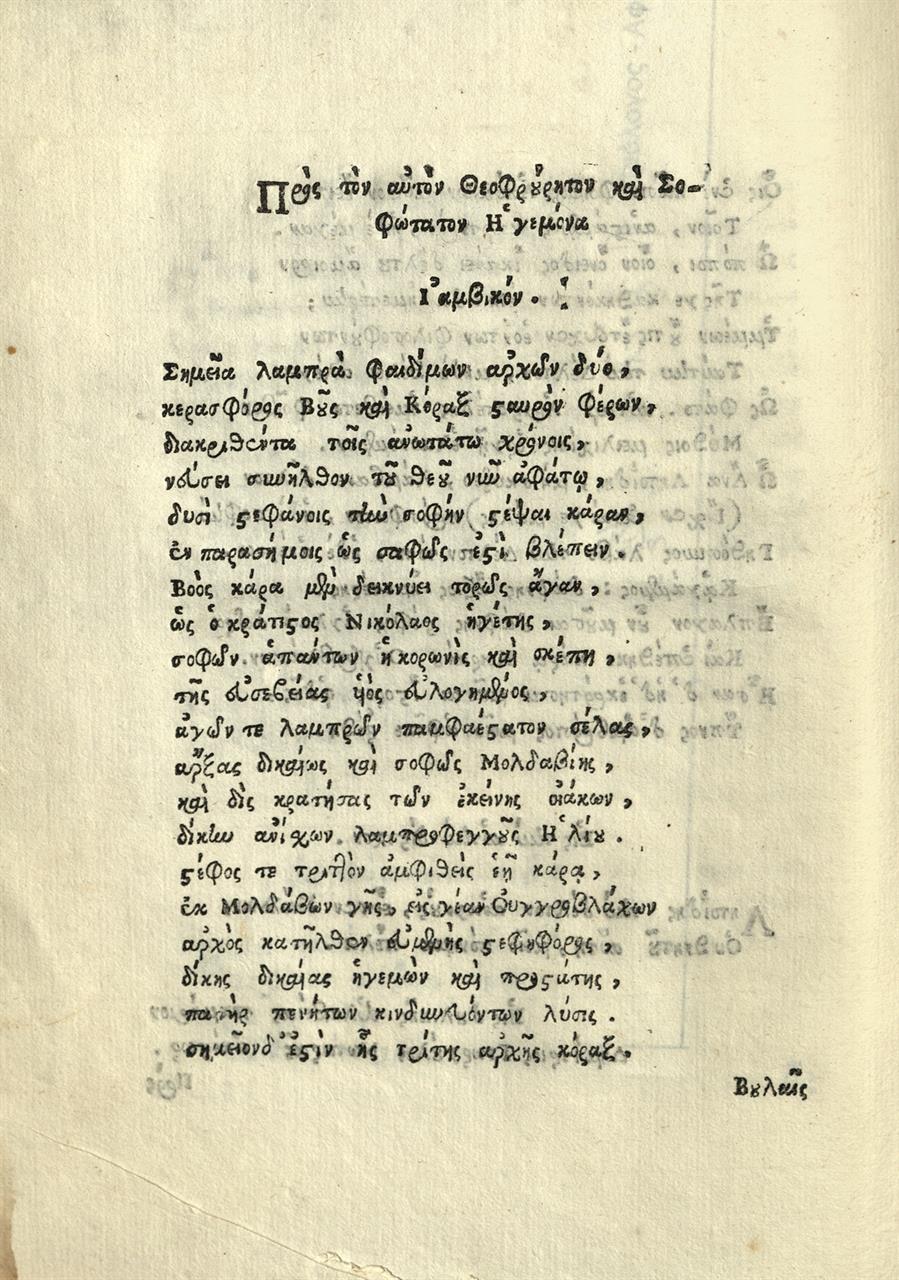 Πρὸς τὸν αὐτὸν Θεοφρούρητον καὶ Σο-
φώτατον Ἡγεμόνα
Ἰαμβικόν.
Σημεῖα λαμπρὰ φαιδίμων ἀρχῶν δύο,
κερασφόρος Βοῦς καὶ Κόραξ ϛαυρὸν φέρων,
διακριθέντα τοῖς ἀνωτάτω χρόνοις,
νεύσει συνῆλθον τοῦ θεοῦ νῦν ἀφάτῳ,
δυσὶ ϛεφάνοις τὴν σοφὴν ϛέψαι κάραν,
ἐν παρασήμοις ὡς σαφῶς ἐϛὶ βλέπειν.
Βοὸς κάρα μὲν δεικνύει τορῶς ἄγαν,
ὡς ὁ κράτιϛος Νικόλαος ἡγέτης,
σοφῶν ἁπάντων ἡ κορωνὶς καὶ σκέπη,
τῆς εὐσεβείας υἱὸς εὐλογημένος,
ἀγών τε λαμπρῶν παμφαέϛατον σέλας,
ἄρξας δικαίως καὶ σοφῶς Μολδαβίης,
καὶ δὶς κρατήσας τῶν ἐκείνης οἰάκων,
δίκην ἀνίσχων λαμπροφεγγοῦς Ἡλίου.
ϛέφος τε τριτὸν ἀμφιθεὶς ἑῇ κάρᾳ,
ἐκ Μολδάβων γῆς, εἰς γέαν Οὐγγροβλάχων
ἀρχὸς κατῆλθεν εὐμενὴς ϛεφηφόρος,
δίκης δικαίας ἡγεμὼν καὶ προϛάτης,
πατὴρ πενήτων κινδυνευόντων λύσις.
σημεῖον δ' ἐϛὶν ἧς τρίτης ἀρχῆς κόραξ.
Βουλαῖς